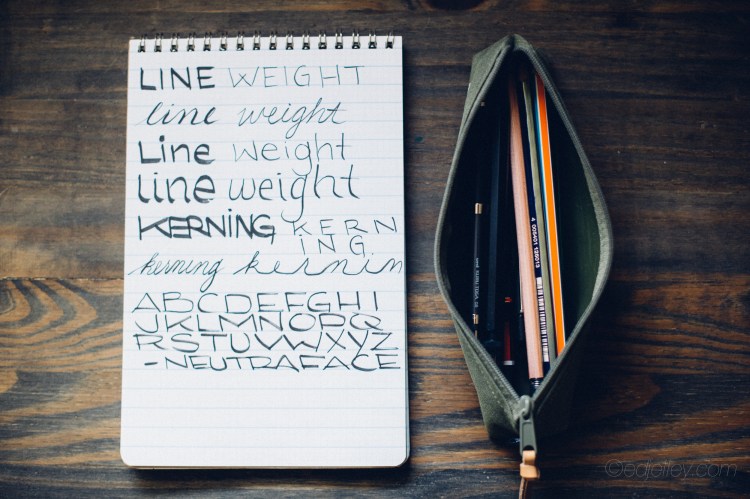 LINE WEIGHT
line weight
Line Weight
line weight
KERNING KERN
ING
kerning kernin
ABCDEFGHI
JKLMNOPQ
RSTUVWXYZ
- NEUTRAFACE
4 008401 129013
©edjelley.com